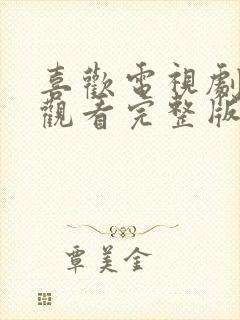 喜歡電視劇
觀看完整版
覃美金